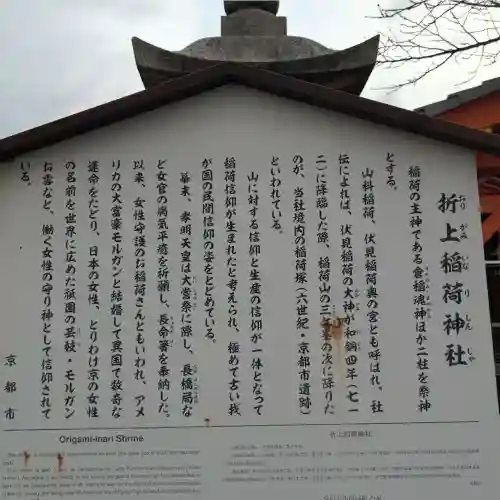 折上稲荷神社
おり がみ いな り じん しゃ
稲荷の主神である倉稲魂神ほか二柱を祭神
とする。
山科稲荷、伏見稲荷奥の宮とも呼ばれ、社
伝によれば、伏見稲荷の大神が和銅四年（七一
一）に降臨した際、稲荷山の三ヶ峯の次に降りた
のが、当社境内の稲荷塚（六世紀・京都市遺跡）
といわれている。
山に対する信仰と生産の信仰が一体となって
稲荷信仰が生まれたと考えられ、極めて古い我
が国の民間信仰の姿をとどめている。
幕末、孝明天皇は大嘗祭に際し、長橋局な
ど女官の病気平癒を祈願し、長命箸を奉納した。
以来、女性守護のお稲荷さんともいわれ、アメ
リカの大富豪モルガンと結婚して異国で数奇な
運命をたどり、日本の女性、とりわけ京の女性
の名前を世界に広めた祇園の芸妓・モルガン
お雪など、働く女性の守り神として信仰されて
いる。
京都市
Origami-inari Shrine
折上稻荷神社